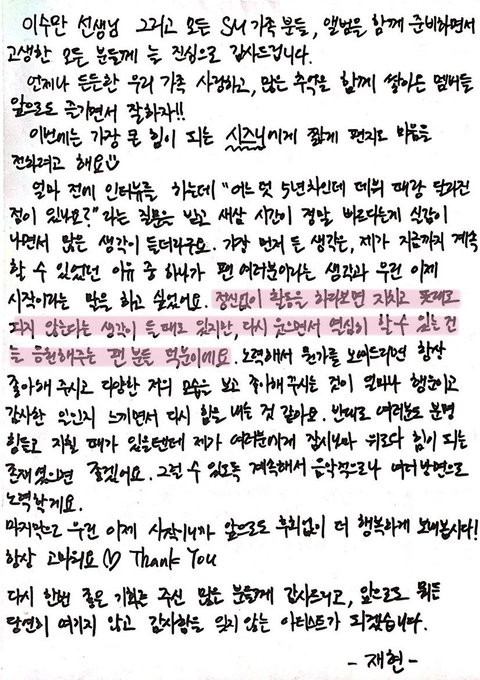 이수만 선생님 그리고 모든 SM 가족분들, 앨범을 함께 준비하면서
고생한 모든 분들께 늘 진심으로 감사드립니다.
언제나 든든한 우리 가족 사랑하고, 많은 추억을 함께 쌓아온 멤버들
앞으로도 즐기면서 잘하자!!
이번에는 가장 큰 힘이 되는 시즈니에게 짧게 편지로 마음을
전하려고 해요
얼마 전에 인터뷰를 하는데 "어느덧 5년차인데 데뷔 때랑 달라진
점이 있나요?"라는 질문을 받고 새삼 시간이 정말 빠르다는게 실감이
나면서 많은 생각이 들더라구요. 가장 먼저 든 생각은, 제가 지금까지 계속
할 수 있었던 이유 중 하나가 팬 여러분이라는 생각과 우린 이제
시작이라는 말을 하고 싶었어요. 정신없이 활동을 하다보면 지치고 뜻대로
되지 않는다는 생각이 들 때도 있지만, 다시 웃으면서 열심히 할 수 있는 건
늘 응원해주는 팬 분들 덕분이에요. 노력해서 뭔가를 보여드리면 항상
좋아해 주시고 다양한 저의 모습을 보고 좋아해주시는 것이 얼마나 행운이고
감사한 일인지 느끼면서 다시 힘을 내는 것 같아요. 반대로 여러분도 분명
힘들고 지칠 때가 있을텐데 제가 여러분에게 잠시나마 위로와 힘이 되는
존재였으면 좋겠어요. 그럴 수 있도록 계속해서 음악적으로나 여러방면으로
노력할게요.
마지막으로 우린 이제 시작이니까 앞으로도 후회없이 더 행복하게 보내봅시다!
항상 고마워요 ♡ Thank You
다시 한번 좋은 기회를 주신 많은 분들께 감사드리고, 앞으로도 뭐든
당연히 여기지 않고 감사함을 잊지 않는 아티스트가 되겠습니다.
- 재현 -